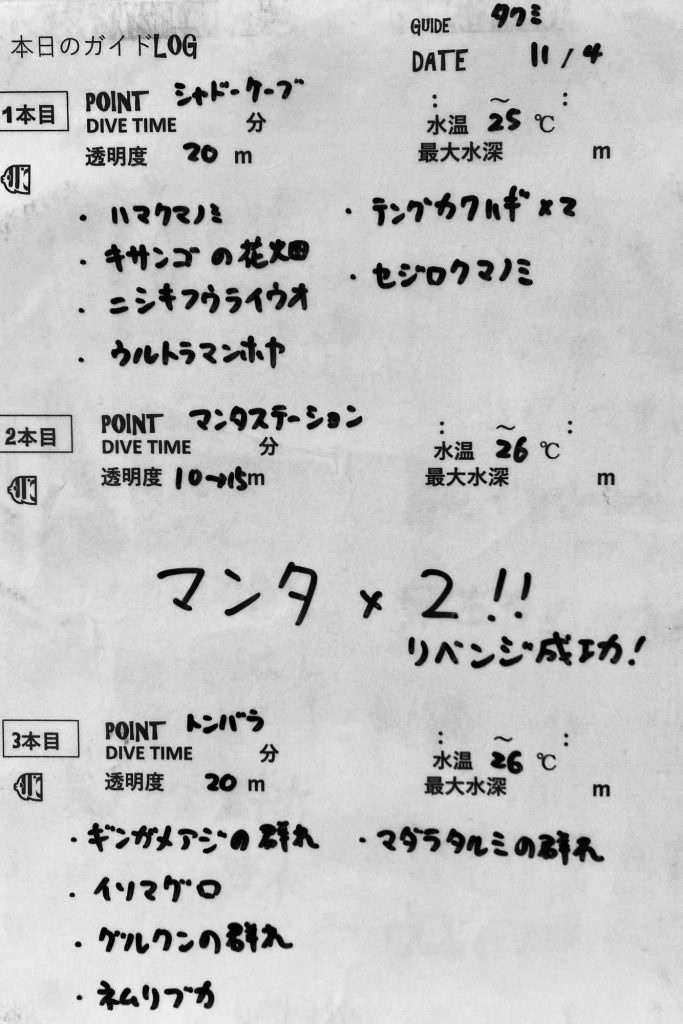 本日のガイドLOG
GUIDE タクミ
DATE 11/4
1本目
POINT シャドーケーブ
: ～ :
DIVE TIME 分
水温 25 ℃
透明度 20 m
最大水深 m
・ハマクマノミ
・テングカワハギ×2
・キサンゴの花火田
・セジロクマノミ
・ニシキフウライウオ
・ウルトラマンホヤ
2本目
POINT マンタステーション
: ～ :
DIVE TIME 分
水温 26 ℃
透明度 10→15m
最大水深 m
マンタ×2!!
リベンジ成功!
3本目
POINT トンバラ
: ～ :
DIVE TIME 分
水温 26 ℃
透明度 20 m
最大水深 m
・ギンガメアジの群れ
・マダラタルミの群れ
・イソマグロ
・グルクンの群れ
・ネムリブカ